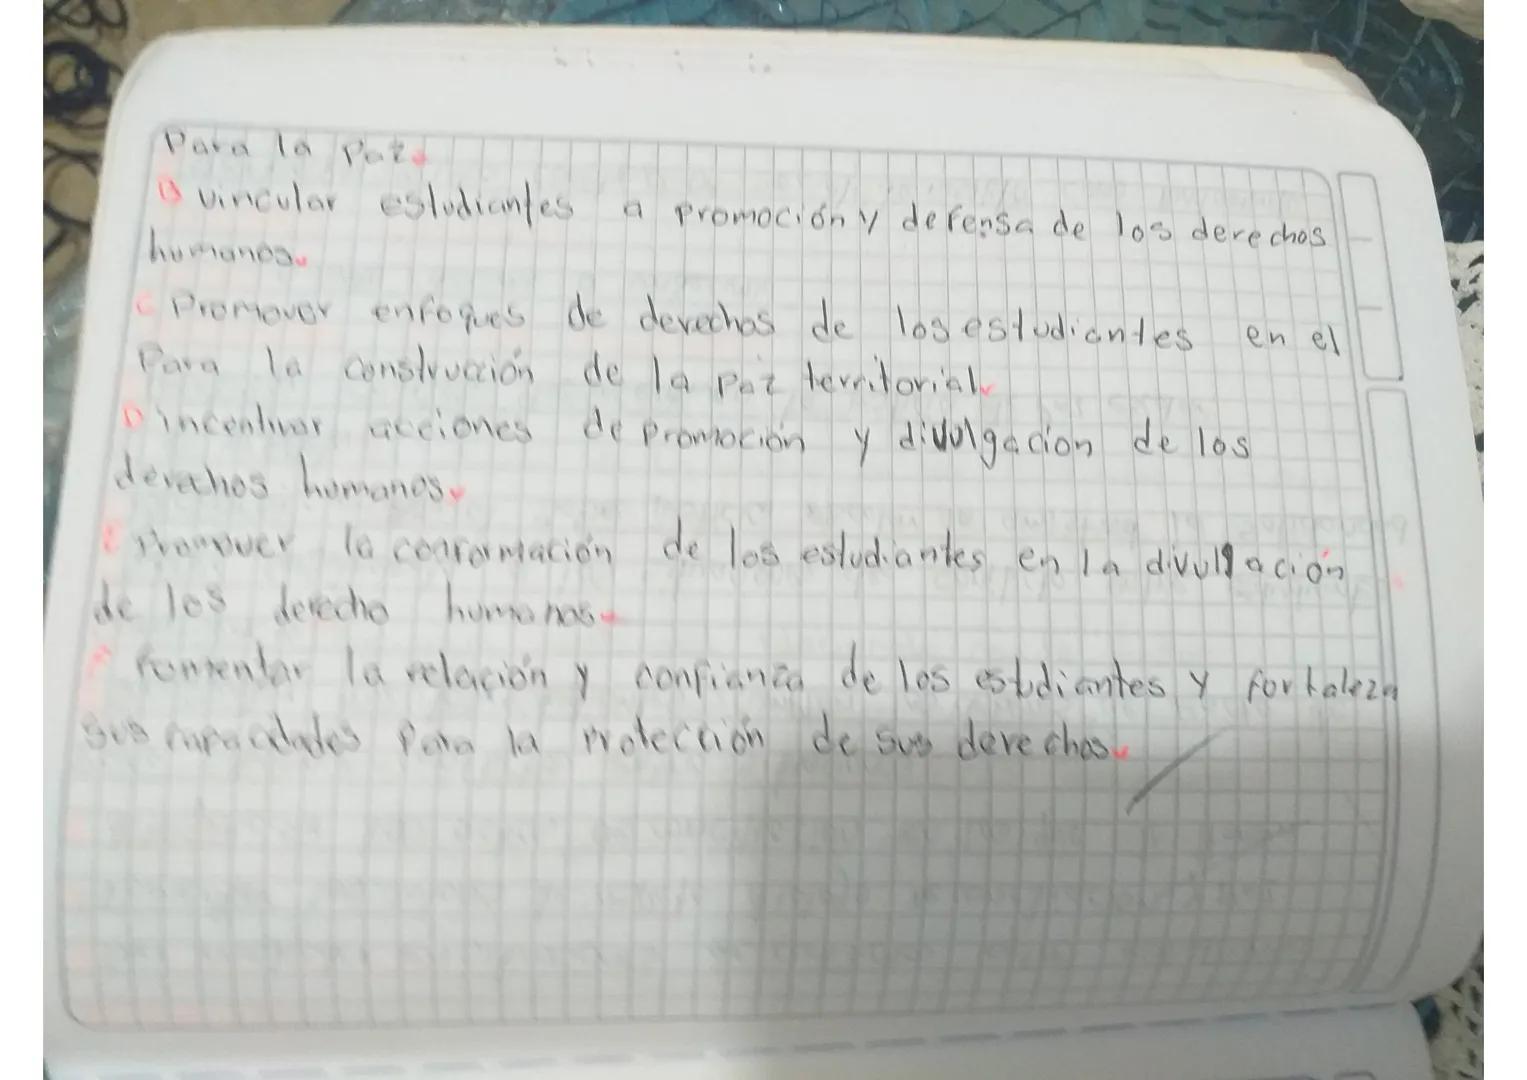 Para la Paz.
B vincular estudiantes a promoción y defensa de los derechos
humanos.
C Promover enfoques de derechos de los estudiantes en el
Para la construcción de la paz territorial.
D incentivar acciones de promoción y divulgacion de los
derechos humanos.
E promover la conformación de los estudiantes en la divulgación
de los derecho humanos.
F fomentar la relación y confianza de los estudiantes y fortaleza
sus capacidades Para la Protección de sus derechos.